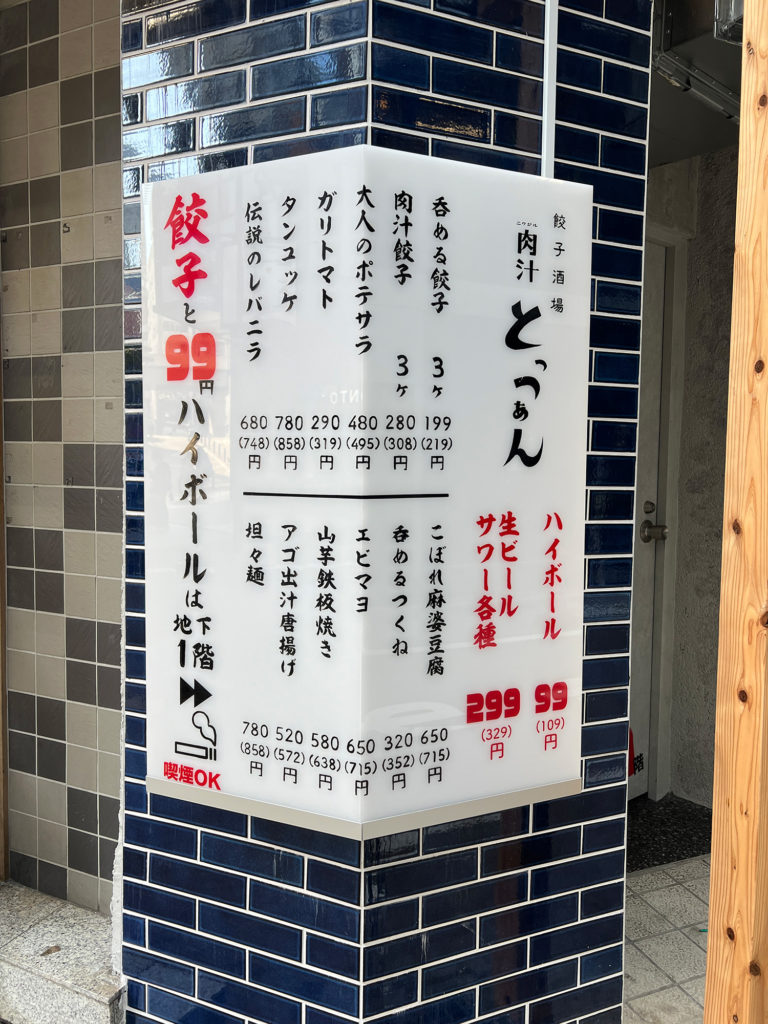 餃子酒場
ニクジル
肉汁
とっつぁん
ハイボール
99
(109)
円
生ビール
サワー各種
299
(329)
円
呑める餃子 3ヶ 199 (219) 円
肉汁餃子 3ヶ 280 (308) 円
大人のポテサラ 480 (495) 円
ガリトマト 290 (319) 円
タンユッケ 780 (858) 円
伝説のレバニラ 680 (748) 円
こぼれ麻婆豆腐 650 (715) 円
呑めるつくね 320 (352) 円
エビマヨ 650 (715) 円
山芋鉄板焼き 580 (638) 円
アゴ出汁唐揚げ 520 (572) 円
坦々麺 780 (858) 円
餃子と99円ハイボールは地下1階
喫煙OK
階